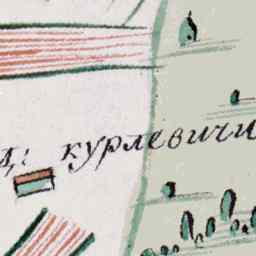 д: курлевичи